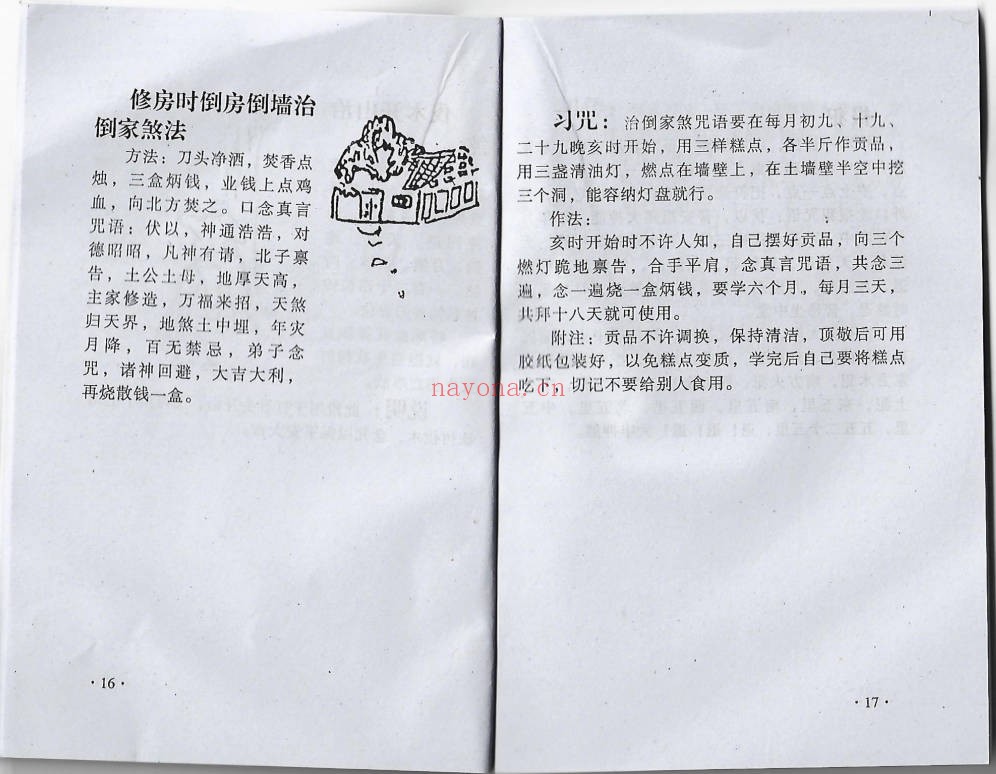 修房时倒房倒墙治
倒家煞法
方法：刀头净酒，焚香点
烛，三盒炳钱，业钱上点鸡
血，向北方焚之。口念真言
咒语：伏以，神通浩浩，对
德昭昭，凡神有请，北子禀
告，土公土母，地厚天高，
主家修造，万福来招，天煞
归天界，地煞土中埋，年灾
月降，百无禁忌，弟子念
咒，诸神回避，大吉大利，
再烧散钱一盒。
·16·
习咒：治倒家煞咒语要在每月初九、十九、
二十九晚亥时开始，用三样糕点，各半斤作贡品，
用三盏清油灯，燃点在墙壁上，在土墙壁半空中挖
三个洞，能容纳灯盘就行。
作法：
亥时开始时不许人知，自己摆好贡品，向三个
燃灯跪地禀告，合手平肩，念真言咒语，共念三
遍，念一遍烧一盒炳钱，要学六个月，每月三天，
共拜十八天就可使用。
附注：贡品不许调换，保持清洁，顶敬后可用
胶纸包装好，以免糕点变质，学完后自己要将糕点
吃下，切记不要给别人食用。
·17·
nayona.cn